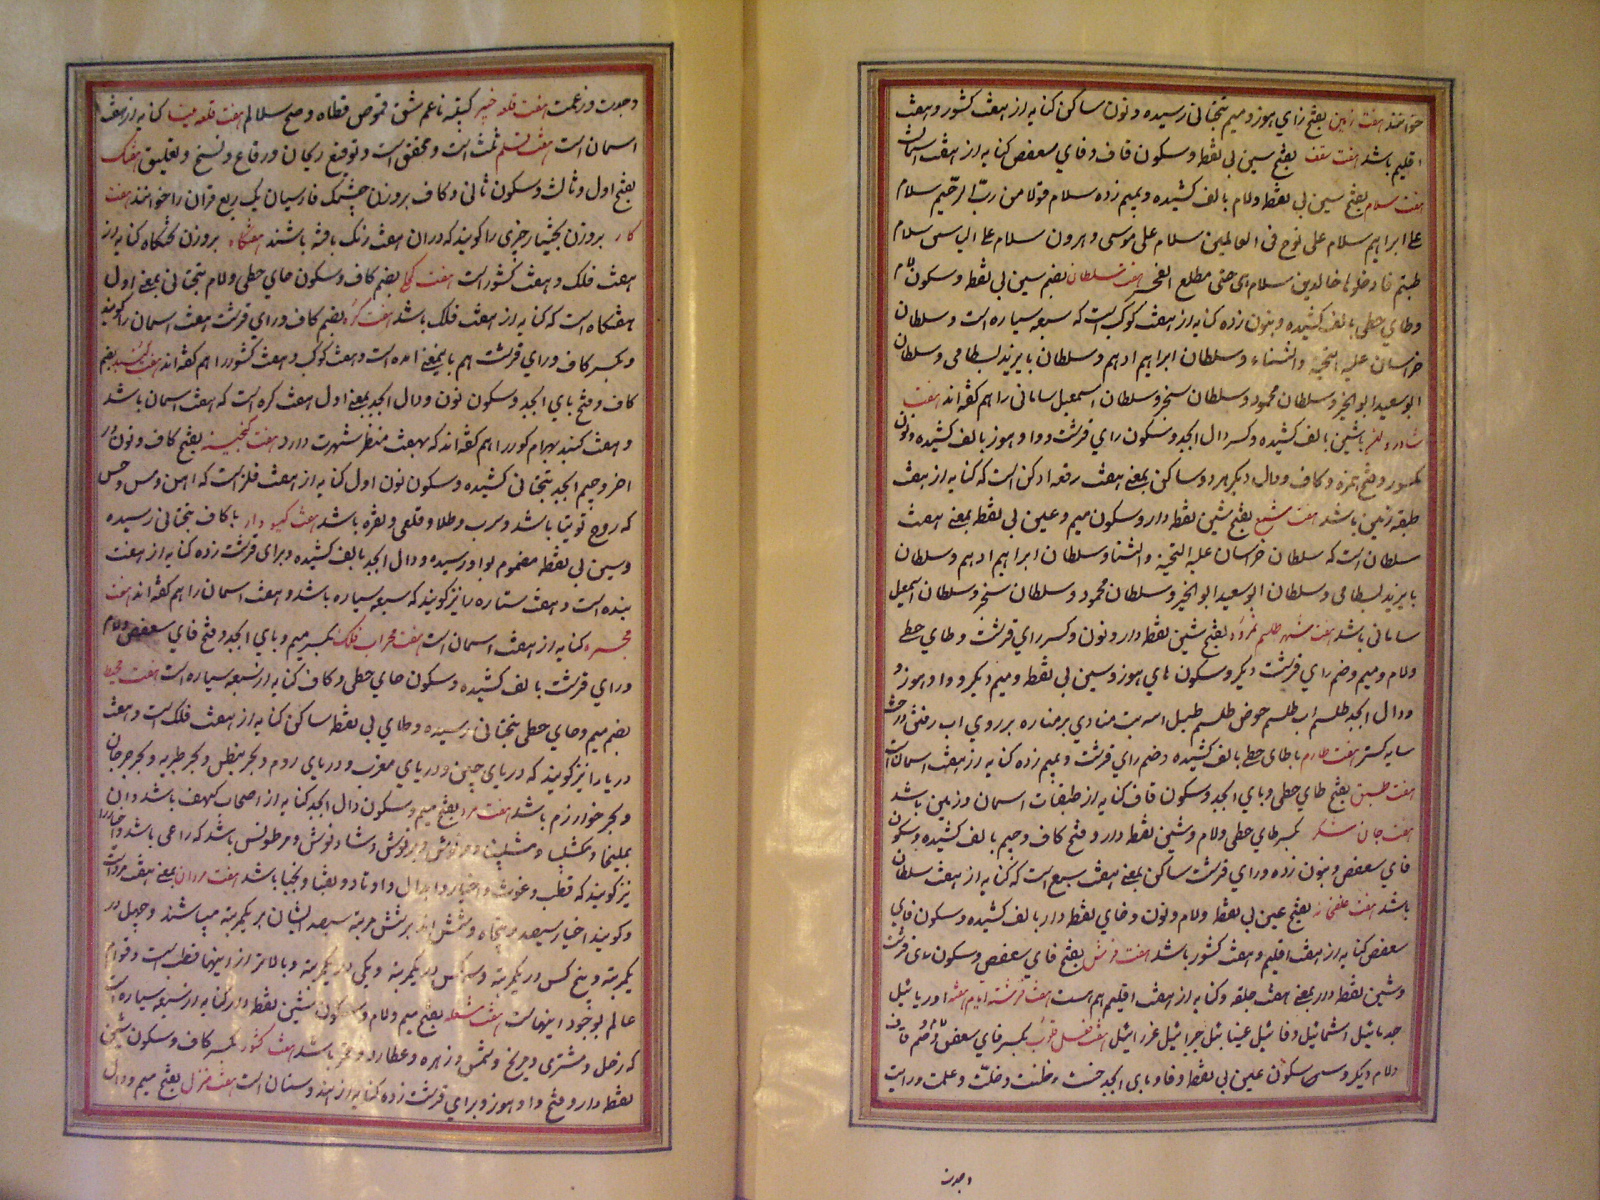 خوانند هفت زمین بفتح زاي هوز و میم بتحتانی رسیده و نون ساکن کنایه از هفت کشور و هفت
اقلیم باشد هفت سقف بفتح سین بی نقطه و سکون قاف و فاي سعفص کنایه از هفت آسمانست
هفت سلام بفتح سین بی نقطه و لام بالف کشیده و بمیم زده سلام قولا من رب الرحیم سلام
علی ابراهیم سلام علی نوح فی العالمین سلام علی موسی و هرون سلام علی الیاسین سلام
طبتم فادخلوها خالدین سلام هی حتی مطلع الفجر هفت سلطان بضم سین بی نقطه و سکون لام
و طاي حطی بالف کشیده و بنون زده کنایه از هفت کوکب است که سبعه سیاره است و سلطان
خراسان علیه التحیة والثناء و سلطان ابراهیم ادهم و سلطان بایزید بسطامی و سلطان
ابوسعید ابوالخیر و سلطان محمود و سلطان سنجر و سلطان اسمعیل سامانی را هم گفته‌اند هفت
باشین بالف کشیده و کسر دال ابجد و سکون راي قرشت و واو هوز بالف کشیده و نون
مکسور و فتح همزه و کاف و دال دیگر هر دو ساکن بمعنی هفت رقعه ادکن است که کنایه از هفت
طبقه زمین باشد هفت شمع بفتح شین نقطه دار و سکون میم و عین بی نقطه بمعنی هفت
سلطان است که سلطان خراسان علیه التحیة والثنا و سلطان ابراهیم ادهم و سلطان
بایزید بسطامی و سلطان ابوسعید ابوالخیر و سلطان محمود و سلطان سنجر و سلطان اسمعیل
سامانی باشد هفت شهر طلسم نمرود بفتح شین نقطه دار و نون و کسر راي قرشت و طاي حطی
و لام و میم و ضم راي قرشت دیگر و سکون هاي هوز و سین بی نقطه و میم دیگر و واو هوز و
و دال ابجد طلسم اب طلسم حوض طلسم طبل است بت منادي بر مناره بر روي اب رفتن درخت
سایه گستر هفت طارم با طاي حطی بالف کشیده و ضم راي قرشت و بمیم زده کنایه از هفت آسمانست
هفت طبق بفتح طاي حطی و باي ابجد و سکون قاف کنایه از طبقات اسمان و زمین باشد
بکسر طاي حطی و لام و شین نقطه دار و فتح کاف و جیم بالف کشیده و سکون
فاي سعفص و بنون زده و راي قرشت ساکن بمعنی هفت شمع است که کنایه از هفت سلطان
باشد هفت علفخانه بفتح عین بی نقطه و لام و نون و خاي نقطه دار بالف کشیده و سکون فاي
سعفص کنایه از هفت اقلیم و هفت کشور باشد هفت فرش بفتح فاي سعفص و سکون راي قرشت
و شین نقطه دار بمعنی هفت طبقه و کنایه از هفت اقلیم هم است هفت فرشته ایام هفته
عزرائیل بکسر فاي سعفص و ضم قاف
و لام دیگر و سکون عین بی نقطه و فا و باي ابجد
وجدت
وجدت و زعمت هفت قلعه خیبر کتیبه ناعم شق قموص نطاه وطیح سلالم هفت قلعه مینا کنایه از هفت
اسمان است هفت قلم ثلث است و محقق است و توقیع ریحان و رقاع و نسخ و تعلیق هفتک
بفتح اول و ثالث و سکون ثانی و کاف بر وزن چشمک فارسیان یک ربع قران را خوانند هفت
کار بر وزن بختیار چیزي را گویند که در ان هفت رنگ بافته باشند هفتگاه بر وزن تختگاه کنایه از
هفت فلک و هفت کشور است هفت کحلی بضم کاف و سکون حاي حطی و لام بتحتانی بمعنی اول
هفتگاه است که کنایه از هفت فلک باشد هفت کره بضم کاف و راي قرشت هفت اسمان را گویند
و بکسر کاف و راي قرشت هم باینمعنی امده است و هفت کوکب و هفت کشور را هم گفته‌اند هفت گنبد بضم
کاف و فتح باي ابجد و سکون نون و دال ابجد بمعنی اول هفت کره است که هفت اسمان باشد
و هفت گنبد بهرام گور را هم گفته‌اند که بهفت منظر شهرت دارد هفت گنجینه بفتح کاف و نون در
اخر و جیم ابجد بتحتانی کشیده و سکون نون اول کنایه از هفت فلز است که اهن و مس و
که روح توتیا باشد و سرب و طلا و قلعی و نقره باشد هفت گیسودار با کاف بتحتانی رسیده
و سین بی نقطه مضموم بواو رسیده و دال ابجد بالف کشیده و براي قرشت زده کنایه از هفت
بنده است و هفت ستاره را نیز گویند که سبعه سیاره باشد و هفت اسمان را هم گفته‌اند هفت
مجمره کنایه از هفت اسمان است هفت محراب فلک بکسر میم و باي ابجد و فتح فاي سعفص و لام
و راي قرشت بالف کشیده و سکون حاي حطی و کاف کنایه از سبعه سیاره است هفت محیط
بضم میم و حاي حطی بتحتانی رسیده و طاي بی نقطه ساکن کنایه از هفت فلک است و هفت
دریا را نیز گویند که دریاي چین و دریاي مغرب و دریاي روم و بحر بنطس و بحر طبریه و بحر جرجان
و بحر خوارزم باشد هفت مرد بفتح میم و سکون دال ابجد کنایه از اصحاب کهف باشد و ان
یملیخا و مکشلینا و مشلینا و مرنوش و دبرنوش و شاذنوش و مرطونس باشد که راعی باشد و اخیار را
نیز گویند که قطب و غوث و اخیار و ابدال و اوتاد و نقبا و نجبا باشد هفت مردان بمعنی هفت مرد است
و گویند اخیار سیصد و پنجاه و شش اند بر شش مرتبه سیصد ایشان بر یکمرتبه میباشند و چهل در
یکمرتبه و پنج کس در یکمرتبه و سه کس در یکمرتبه و یکی در یکمرتبه و بالاتر از اینها قطب است و قوام
عالم بوجود اینهاست هفت مشعله بفتح میم و لام و سکون شین نقطه دار کنایه از سبعه سیاره است
که زحل و مشتري و مریخ و شمس و زهره و عطارد و قمر باشد هفت کشور بکسر کاف و سکون شین
نقطه دار و فتح واو هوز و براي قرشت زده کنایه از هندوستان است هفت منزل بفتح میم و دال